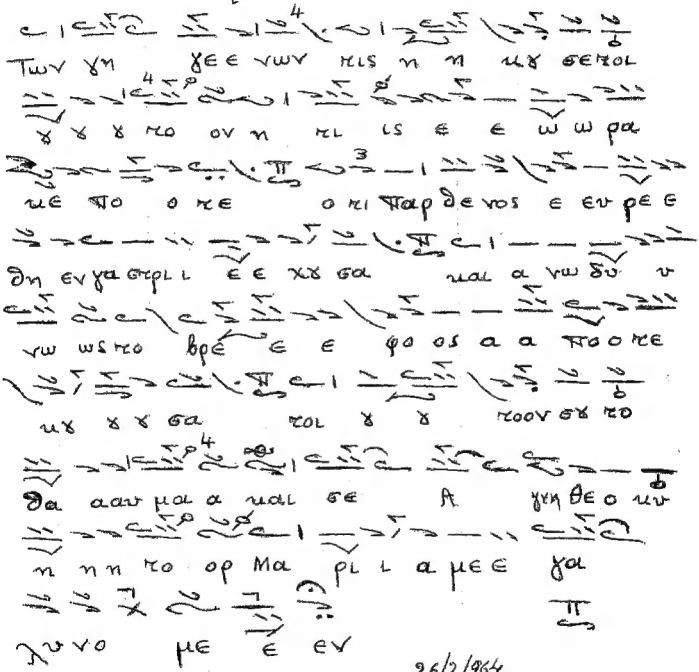 Των γη γε ε νων τις η η κȣ σε τοι
ȣ ȣ ȣ το ον η τι ις ε ε ω ω ρα
κε πο ο τε ο τι παρ θε νος ε ευ ρε ε
θη εν γα στρι ι ε ε χȣ σα και α νω δυ υ
νω ως το βρε ε ε φο ος α α πο ο τε
κȣ ȣ ȣ σα τοι ȣ ȣ το ον σȣ το
θα α αυ μα α και σε Α γνη θε ο κυ
η η η το ορ Μα ρι ι α με ε γα
λυ νο με ε εν
26/2/964